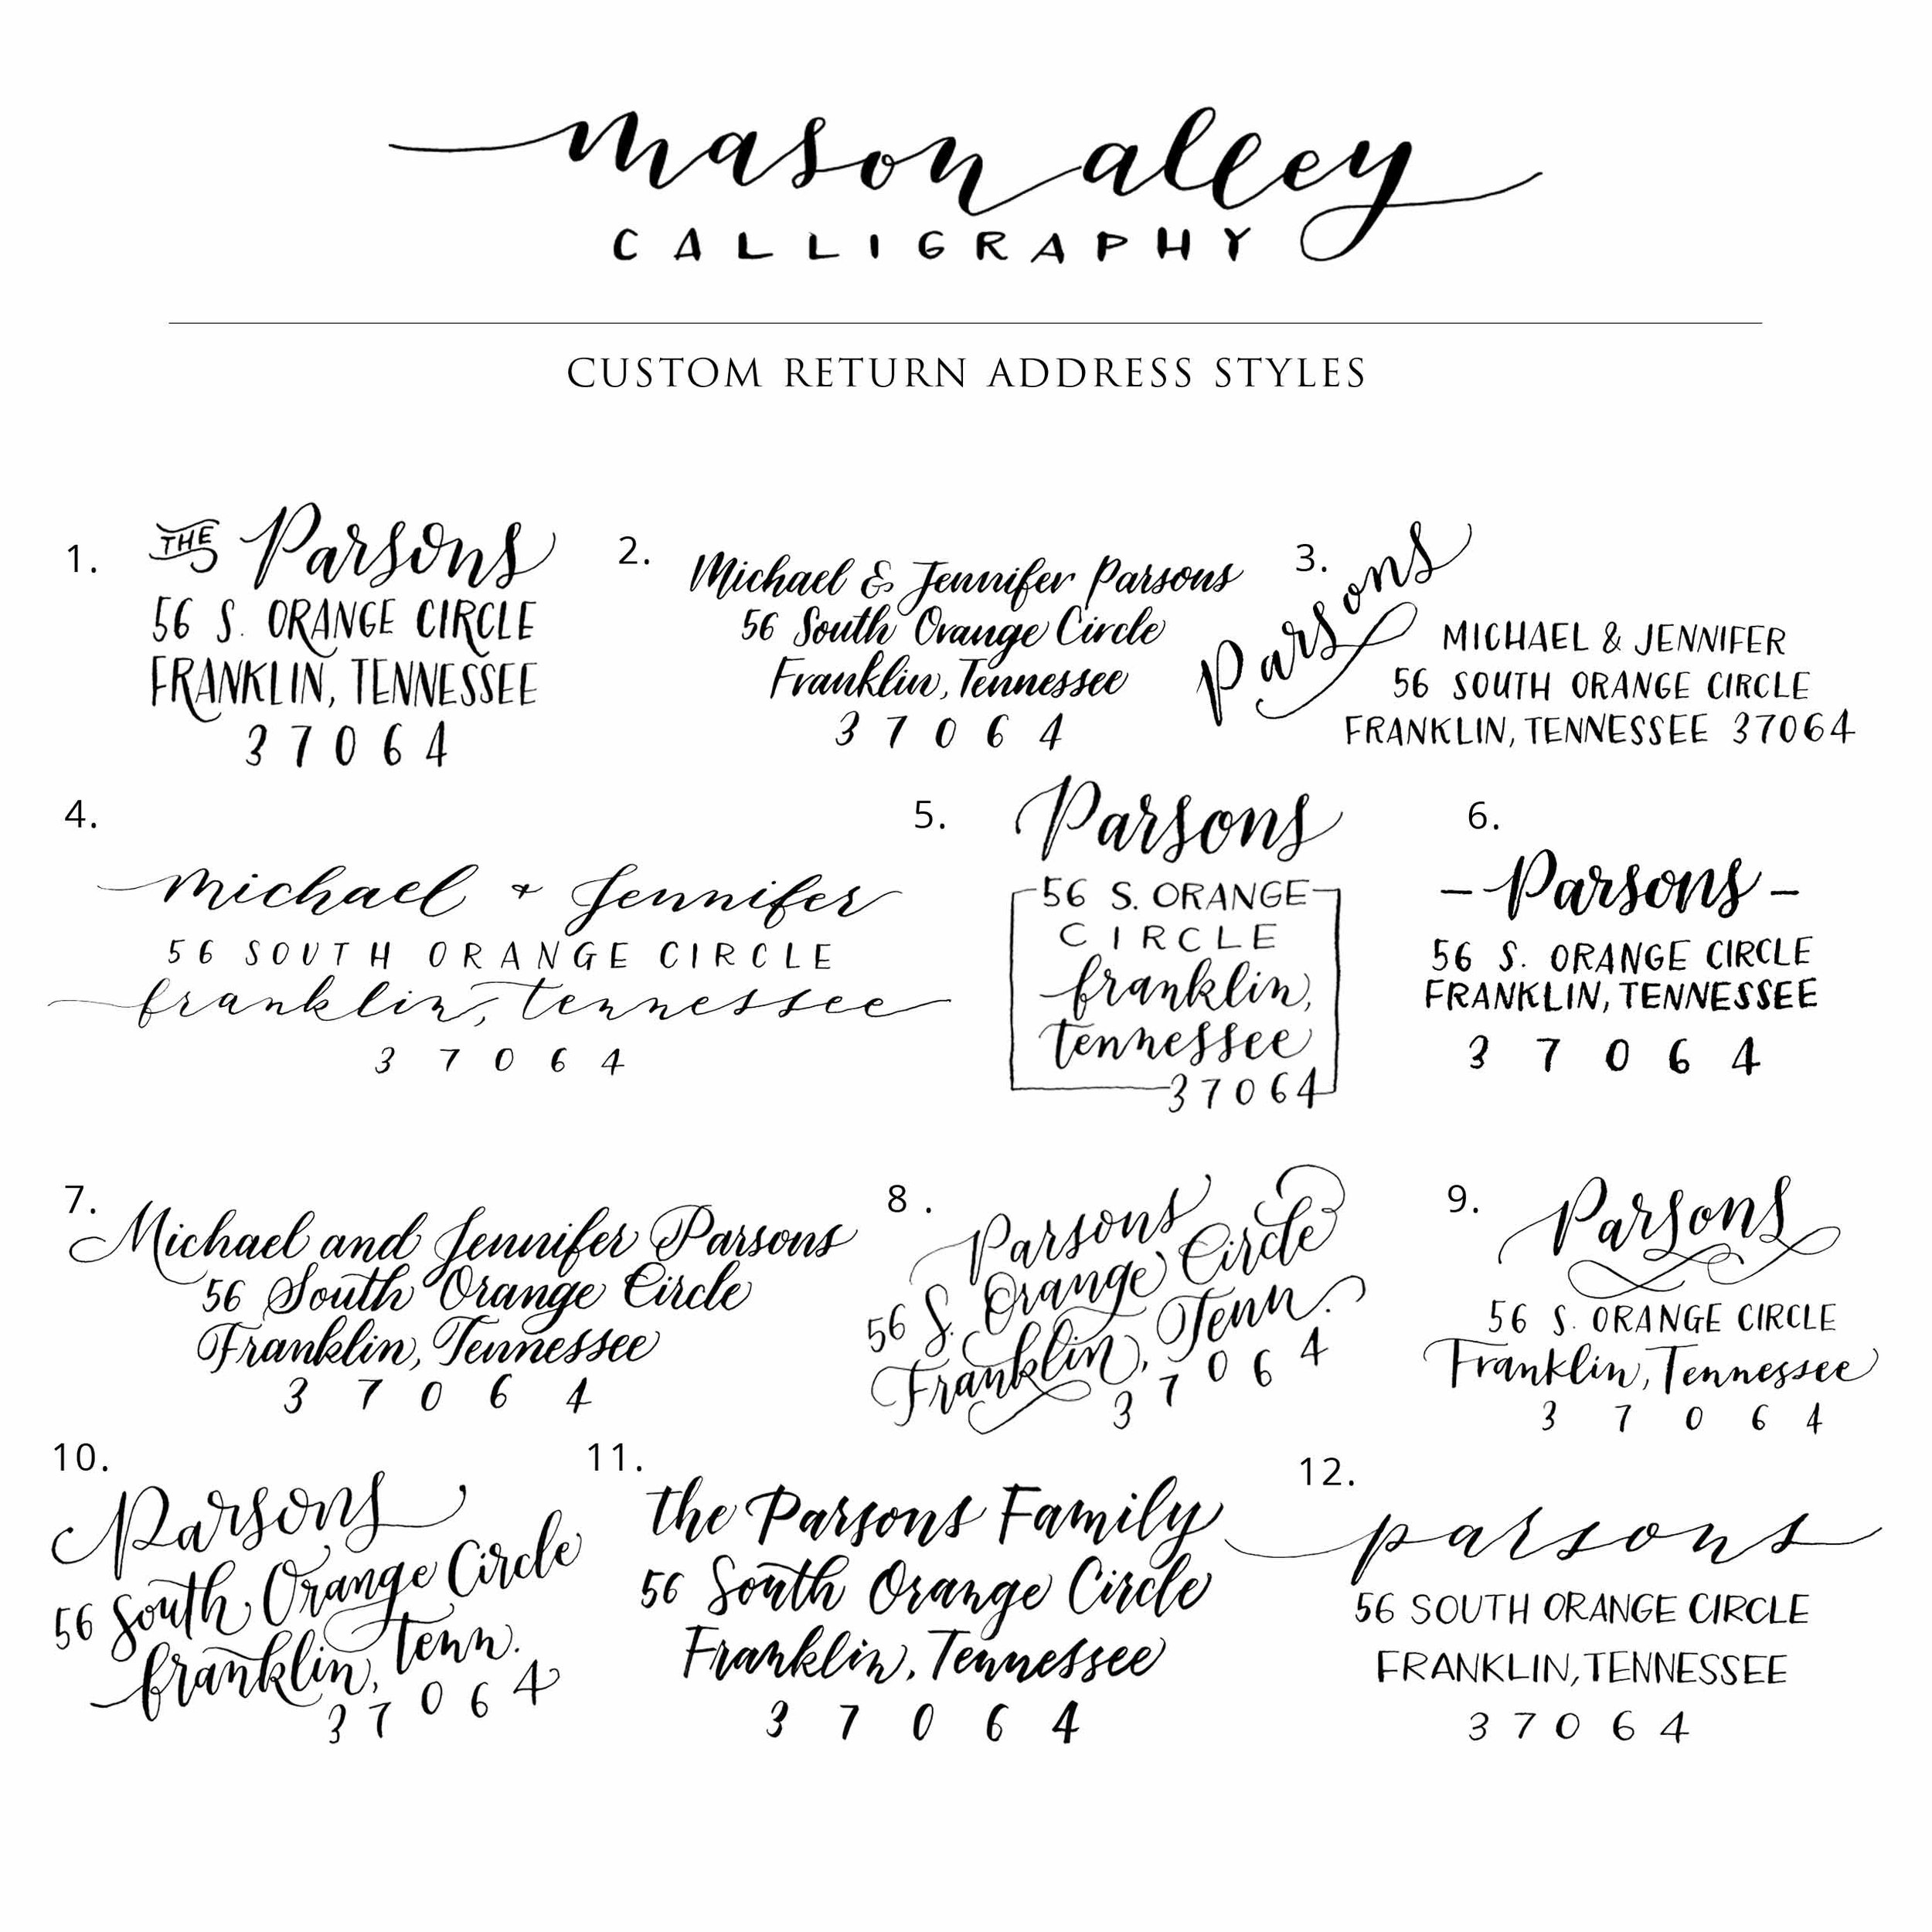 mason alley
CALLIGRAPHY
CUSTOM RETURN ADDRESS STYLES
1.
THE Parsons
56 S. ORANGE CIRCLE
FRANKLIN, TENNESSEE
37064
2.
Michael & Jennifer Parsons
56 South Orange Circle
Franklin, Tennessee
37064
3.
Parsons
MICHAEL & JENNIFER
56 SOUTH ORANGE CIRCLE
FRANKLIN, TENNESSEE 37064
4.
michael + Jennifer
56 SOUTH ORANGE CIRCLE
franklin, tennessee
37064
5.
Parsons
56 S. ORANGE
CIRCLE
franklin,
tennessee
37064
6.
- Parsons -
56 S. ORANGE CIRCLE
FRANKLIN, TENNESSEE
37064
7.
Michael and Jennifer Parsons
56 South Orange Circle
Franklin, Tennessee
37064
8.
Parsons
56 S. Orange Circle
Franklin, Tenn.
37064
9.
Parsons
56 S. ORANGE CIRCLE
Franklin, Tennessee
37064
10.
Parsons
56 South Orange Circle
franklin, tenn.
37064
11.
the Parsons Family
56 South Orange Circle
Franklin, Tennessee
37064
12.
parsons
56 SOUTH ORANGE CIRCLE
FRANKLIN, TENNESSEE
37064